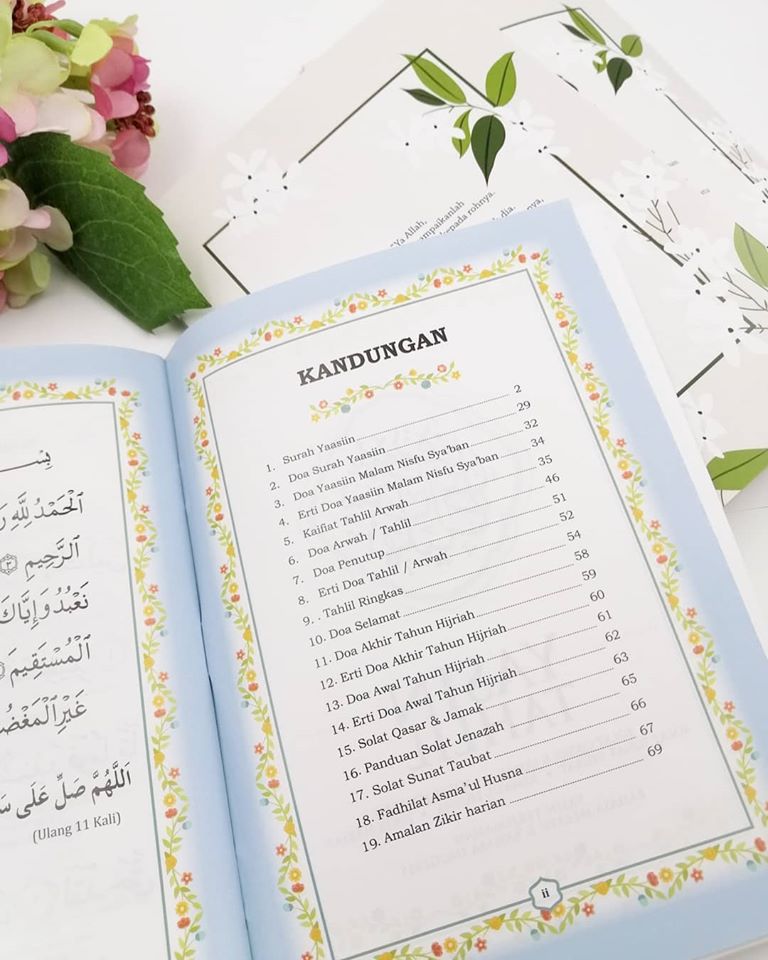 Ya Allah,
rohnya.
بِسْـ
اَلْحَمْدُ لِلّٰهِ
الرَّحِيمِ ٣
نَعْبُدُ وَإِيَّاكَ
الْمُسْتَقِيمَ
غَيْرِ الْمَغْضُ
اَللّٰهُمَّ صَلِّ عَلَى
(Ulang 11 Kali)
KANDUNGAN
1. Surah Yaasiin 2
2. Doa Surah Yaasiin 29
3. Doa Yaasiin Malam Nisfu Sya'ban 32
4. Erti Doa Yaasiin Malam Nisfu Sya'ban 34
5. Kaifiat Tahlil Arwah 35
6. Doa Arwah / Tahlil 46
7. Doa Penutup 51
8. Erti Doa Tahlil / Arwah 52
9. . Tahlil Ringkas 54
10. Doa Selamat 58
11. Doa Akhir Tahun Hijriah 59
12. Erti Doa Akhir Tahun Hijriah 60
13. Doa Awal Tahun Hijriah 61
14. Erti Doa Awal Tahun Hijriah 62
15. Solat Qasar & Jamak 63
16. Panduan Solat Jenazah 65
17. Solat Sunat Taubat 66
18. Fadhilat Asma'ul Husna 67
19. Amalan Zikir harian 69
ii